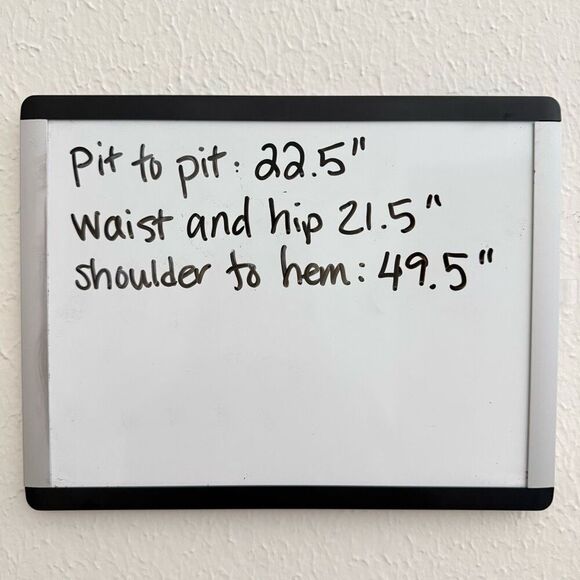 Pit to pit: 22.5"
waist and hip 21.5"
shoulder to hem: 49.5"